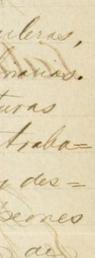 uleras,
inarias.
turas
traba=
y des=
peones
de